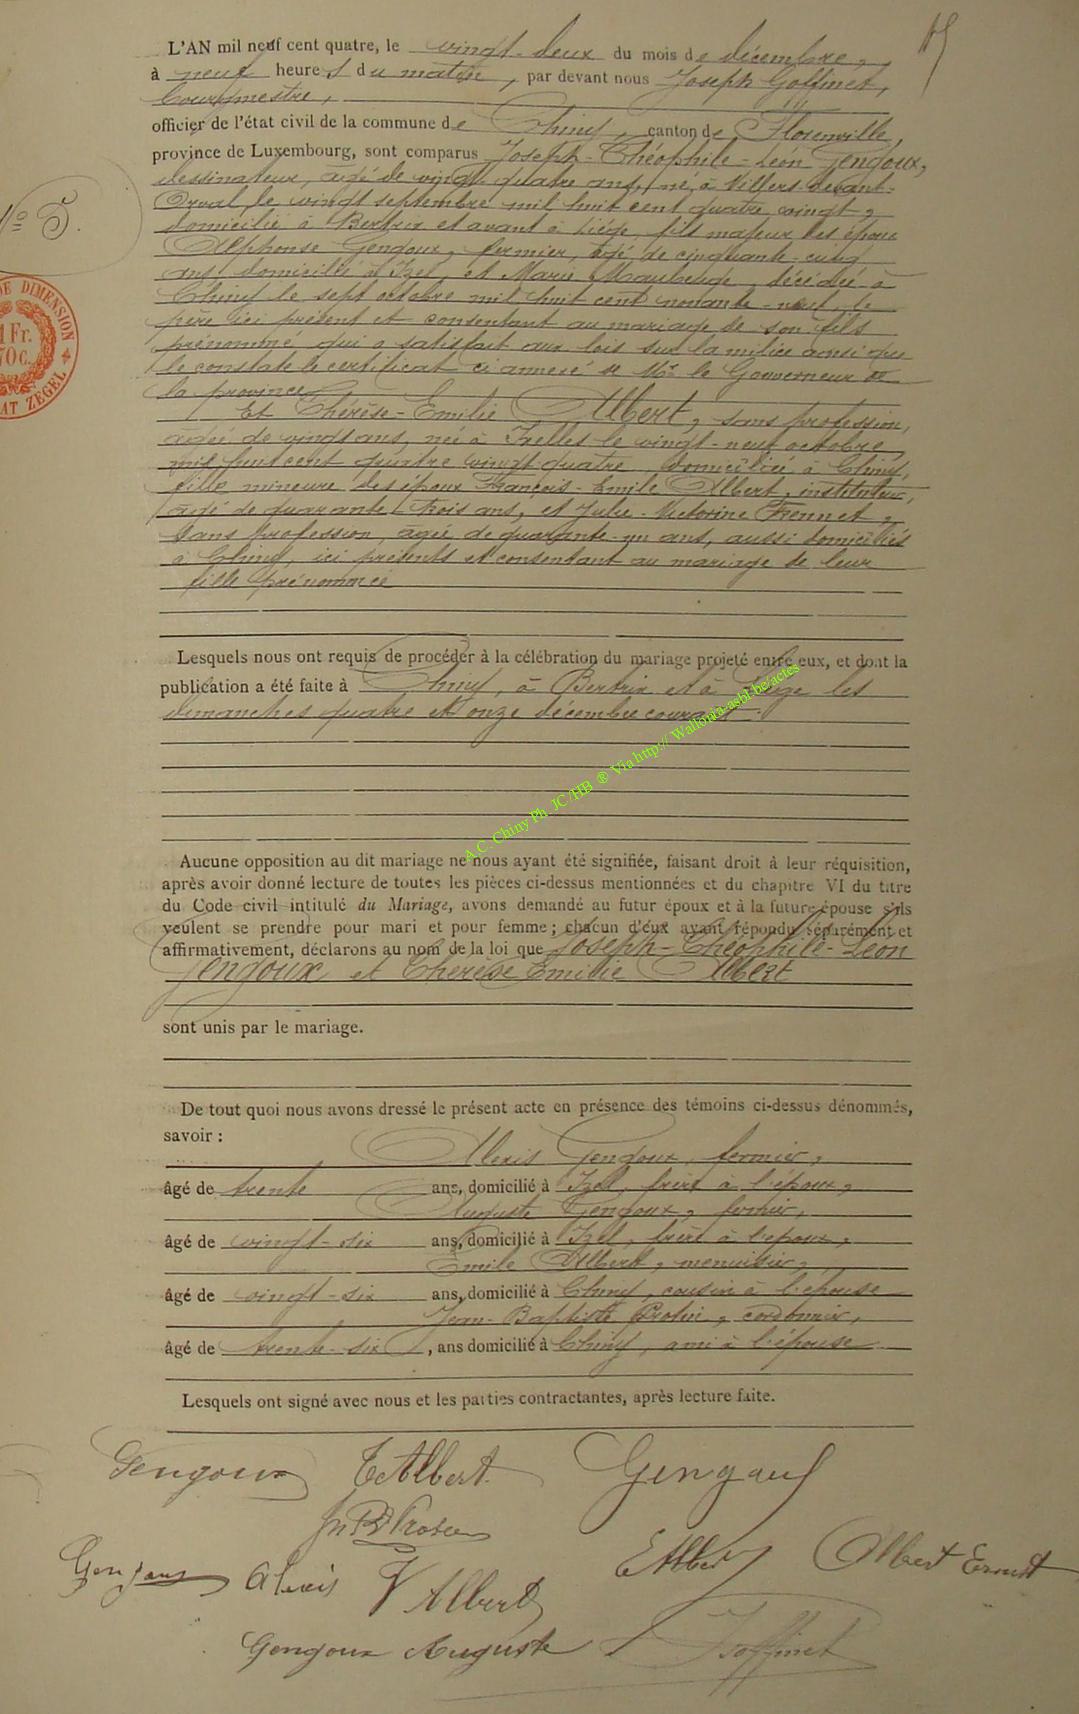 L'AN mil neuf cent quatre, le vingt-deux du mois de décembre,
à neuf heures du matin, par devant nous Joseph Goffinet,
bourgmestre,
officier de l'état civil de la commune de Chiny, canton de Florenville,
province de Luxembourg, sont comparus Joseph-Théophile-Léon Gengoux,
dessinateur, âgé de vingt-quatre ans, né à Villers-devant-
Orval, le vingt septembre mil huit cent quatre vingt,
domicilié à Bertrix et avant à Liége, fils majeur des époux
Alphonse Gengoux, fermier, âgé de cinquante-cinq
ans domicilié à Izel, et Marie Maubeuge, décédée à
Chiny le sept octobre mil huit cent nonante-neuf, le
père ici présent et consentant au mariage de son fils
prénommé qui a satisfait aux lois sur la milice ainsi que
le constate le certificat ci annexé de Mr le Gouverneur de
la province
Et Thérèse-Emilie Albert, sans profession,
âgée de vingt ans, née à Ixelles le vingt-neuf octobre
mil huit cent quatre vingt quatre, domiciliée à Chiny,
fille mineure des époux François-Emile Albert, instituteur,
âgé de quarante trois ans, et Julie-Victorine Fiennet,
sans profession, âgée de quarante-un ans, aussi domiciliés
à Chiny, ici présents et consentant au mariage de leur
fille prénommée
N° 5.
DE DIMENSION
1 Fr.
70 c.
ZEGEL
Lesquels nous ont requis de procéder à la célébration du mariage projeté entre eux, et dont la
publication a été faite à Chiny, à Bertrix et à Liége les
dimanches quatre et onze décembre courant.
A.C. Chiny Ph JC/HB ® Via http:// Wallonia-asbl-be/actes
Aucune opposition au dit mariage ne nous ayant été signifiée, faisant droit à leur réquisition,
après avoir donné lecture de toutes les pièces ci-dessus mentionnées et du chapitre VI du titre
du Code civil intitulé du Mariage, avons demandé au futur époux et à la future épouse s'ils
veulent se prendre pour mari et pour femme ; chacun d'eux ayant répondu séparément et
affirmativement, déclarons au nom de la loi que Joseph-Théophile-Léon
Gengoux et Thérèse Emilie Albert
sont unis par le mariage.
De tout quoi nous avons dressé le présent acte en présence des témoins ci-dessus dénommés,
savoir :
Alexis Gengoux, fermier,
âgé de trente ans, domicilié à Izel, frère à l'époux,
Auguste Gengoux, fermier,
âgé de vingt-six ans, domicilié à Izel, frère à l'époux,
Emile Albert, menuisier,
âgé de vingt-six ans, domicilié à Chiny, cousin à l'épouse
Jean-Baptiste Protin, cordonnier,
âgé de trente-six, ans domicilié à Chiny, ami à l'épouse
Lesquels ont signé avec nous et les parties contractantes, après lecture faite.
Gengoux T Albert Gengoux
Jn Bte Protin
Gengoux Alexis V Albert E Albert Albert Ernest
Gengoux Auguste J Goffinet